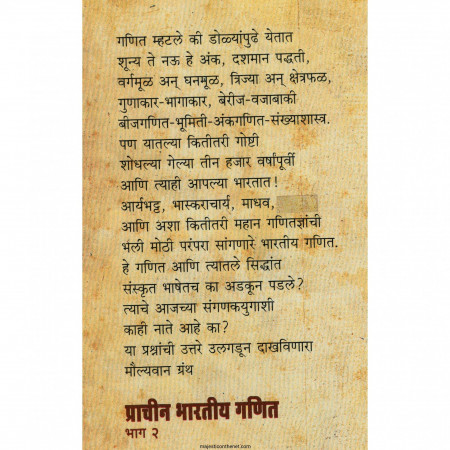 गणित म्हटले की डोळ्यांपुढे येतात
शून्य ते नऊ हे अंक, दशमान पद्धती,
वर्गमूळ अन् घनमूळ, त्रिज्या अन् क्षेत्रफळ,
गुणाकार-भागाकार, बेरीज-वजाबाकी
बीजगणित-भूमिती-अंकगणित-संख्याशास्त्र.
पण यातल्या कितीतरी गोष्टी
शोधल्या गेल्या तीन हजार वर्षांपूर्वी
आणि त्याही आपल्या भारतात!
आर्यभट्ट, भास्कराचार्य, माधव,
आणि अशा कितीतरी महान गणितज्ञांची
भंली मोठी परंपरा सांगणारे भारतीय गणित.
हे गणित आणि त्यातले सिद्धांत
संस्कृत भाषेतच का अडकून पडले?
त्याचे आजच्या संगणकयुगाशी
काही नाते आहे का?
या प्रश्नांची उत्तरे उलगडून दाखविणारा
मौल्यवान ग्रंथ
प्राचीन भारतीय गणित
भाग २
majesticonthenet.com